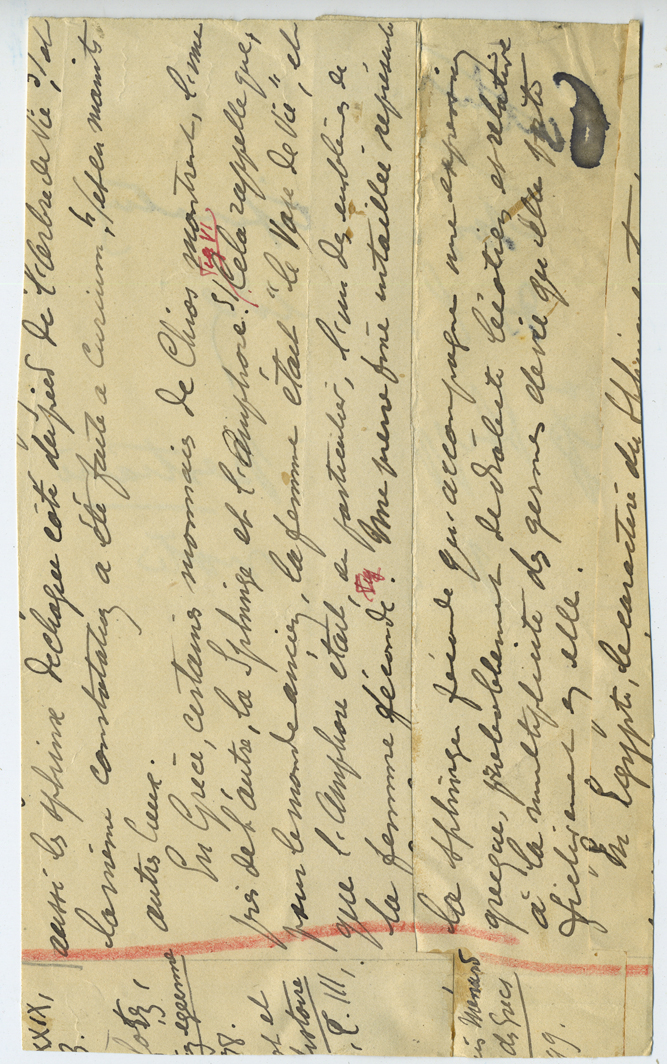 aussi les sphinx de chaque côté du pied de l'Arbre de Vie, 3/ et
la même constatation a été faite a Curium, 4/ et en maints
autres lieux.
En Grèce, certaines monnaies de Chios montrent, l'une
Fig VI
près de l'autre, la Sphinge et l'Amphore. 5/ Cela rappelle que,
pour le monde ancien, la femme était "le Vase de Vie", et
que l'Amphore était, en particulier, l'un des emblèmes de
la femme féconde. Fig Une pierre fine intaillée représente
la sphinge féconde qu'accompagne une expression
grecque, probablement de and relative
à la multiplicité des germes de vie qu'elle porte
en elle.
En Egypte, le caractère du Sphinx
XXIX,
3.
egeenne
98.
et
histoire
T. III,
Menard
des Grecs
99.